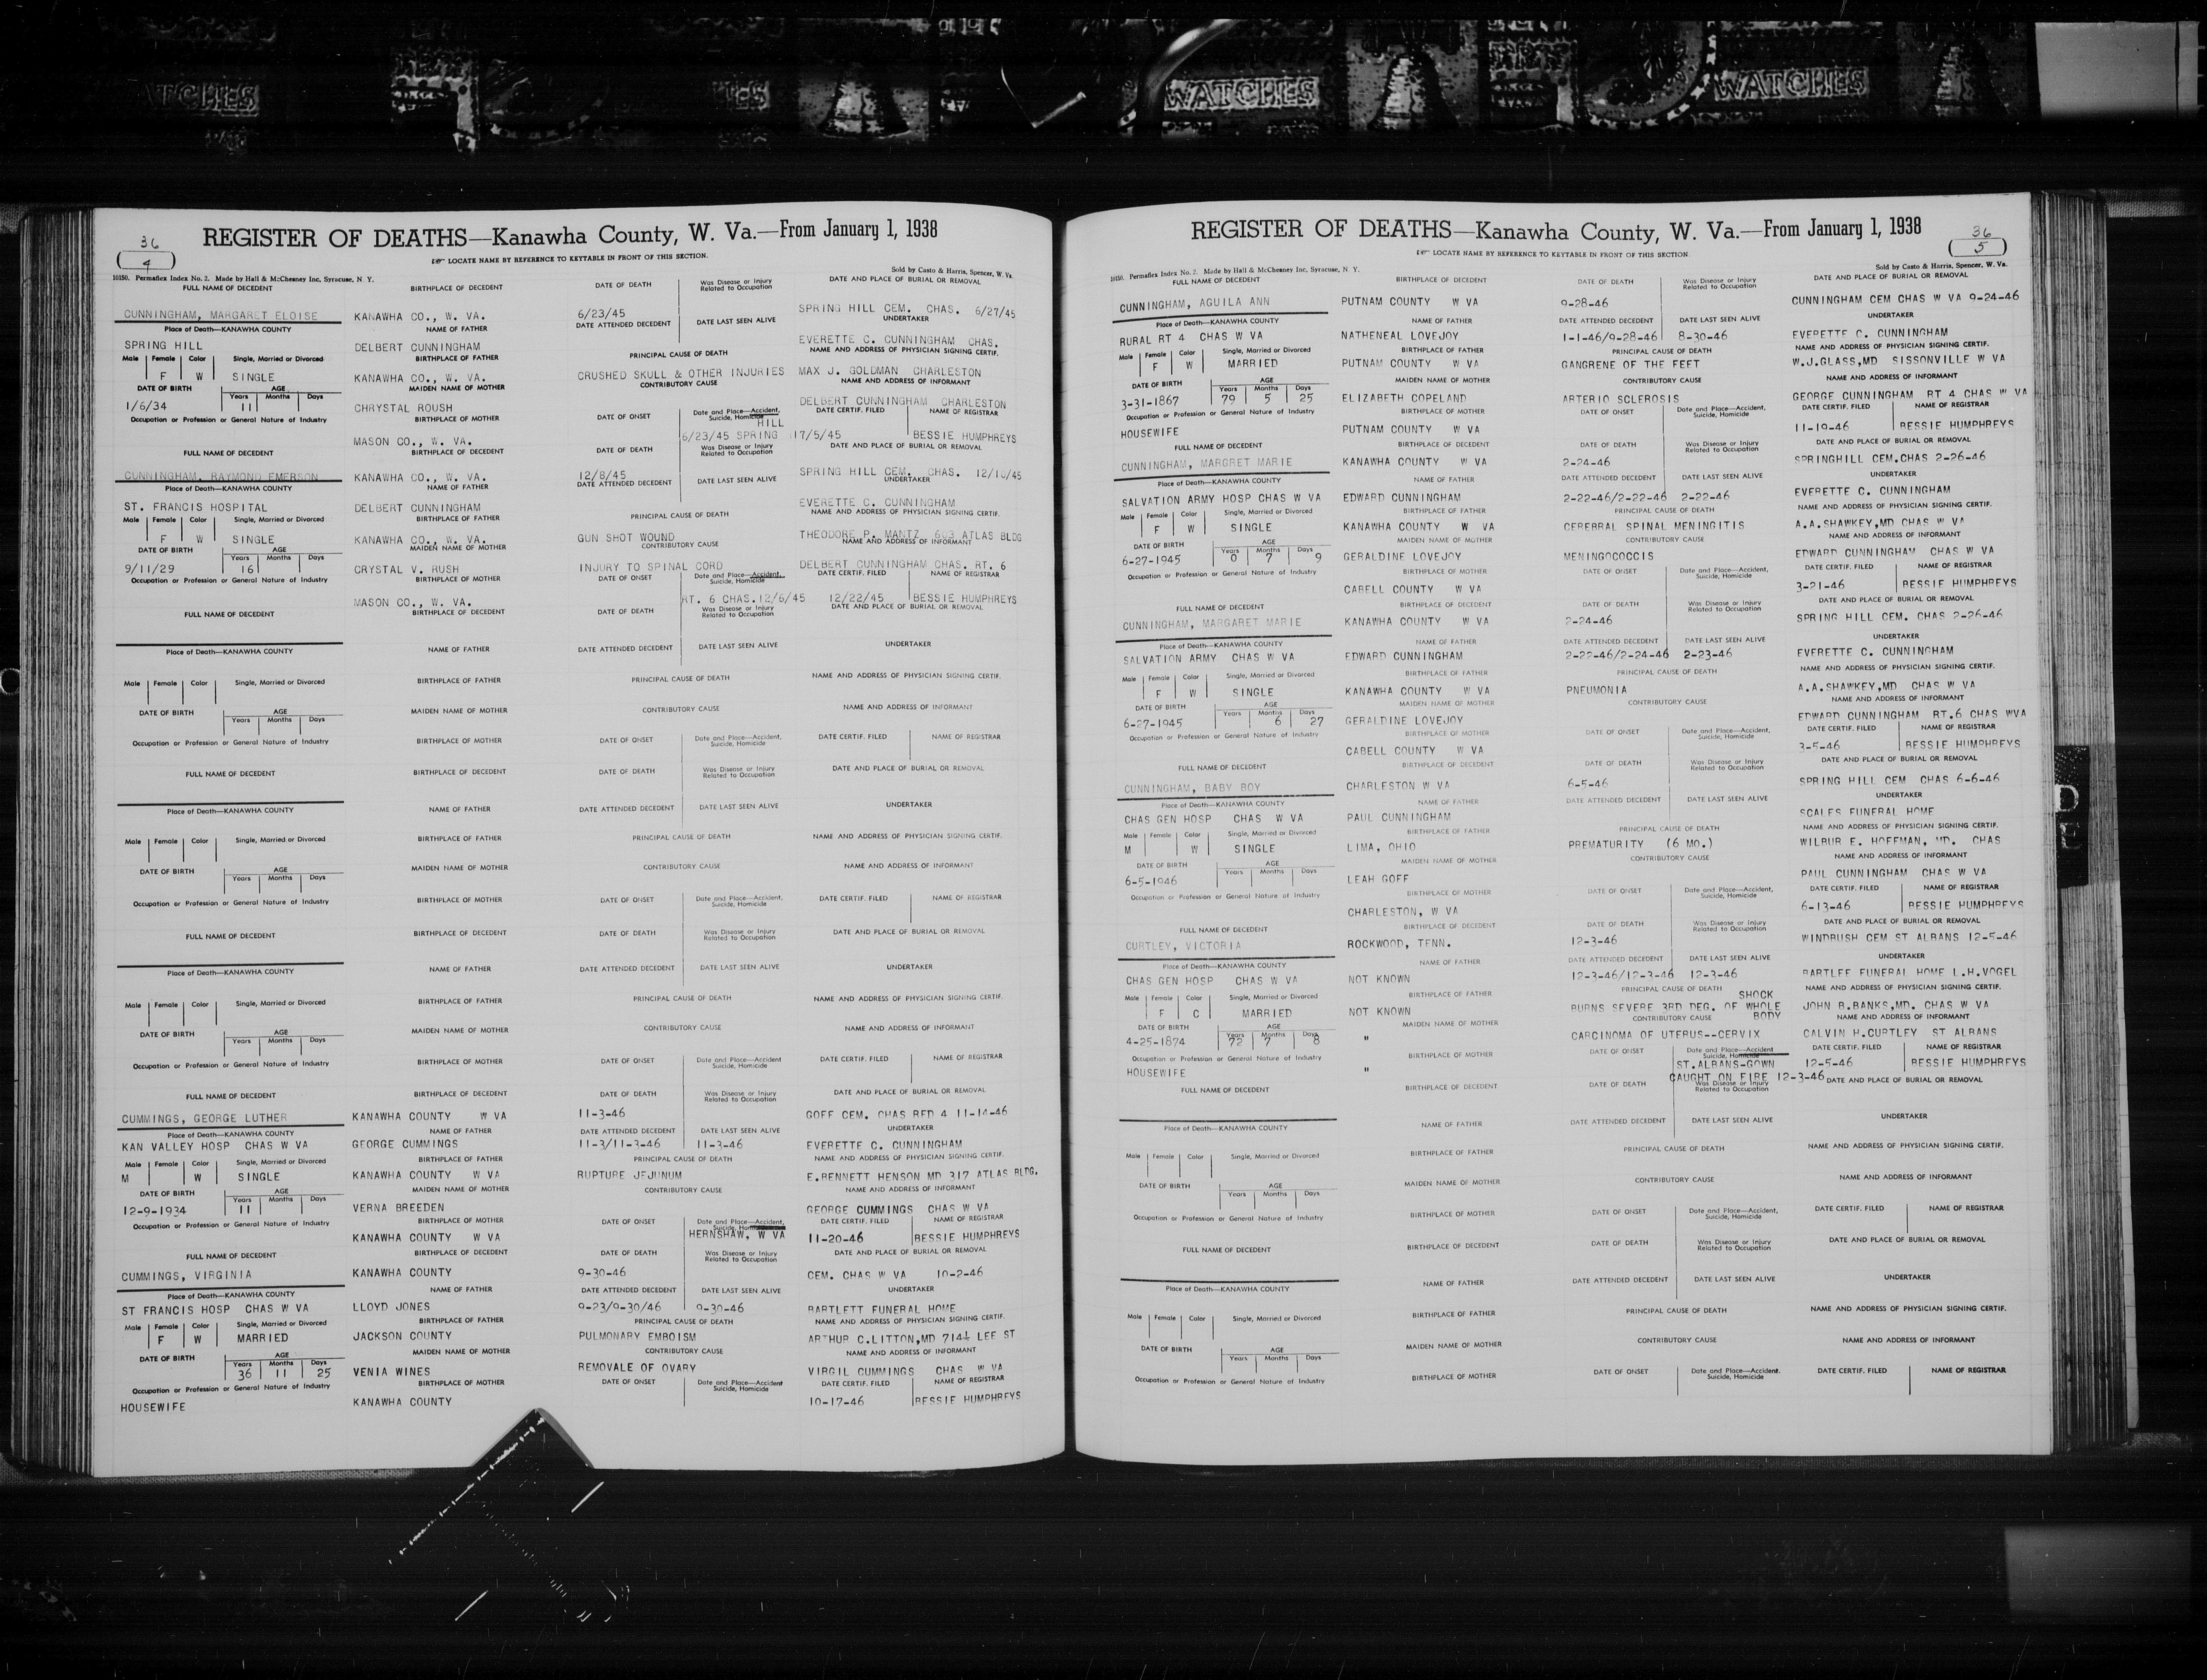 WATCHES
WATCHES
REGISTER OF DEATHS—Kanawha County, W. Va.—From January 1, 1938
36
4
LOCATE NAME BY REFERENCE TO KEYTABLE IN FRONT OF THIS SECTION.
10150. Permaflex Index No. 2. Made by Hall & McChesney Inc, Syracuse, N. Y.
Sold by Casto & Harris, Spencer, W. Va.
FULL NAME OF DECEDENT BIRTHPLACE OF DECEDENT DATE OF DEATH Was Disease or Injury Related to Occupation DATE AND PLACE OF BURIAL OR REMOVAL
CUNNINGHAM, MARGARET ELOISE KANAWHA CO., W. VA. 6/23/45 SPRING HILL CEM. CHAS. 6/27/45
Place of Death—KANAWHA COUNTY NAME OF FATHER DATE ATTENDED DECEDENT DATE LAST SEEN ALIVE UNDERTAKER
SPRING HILL DELBERT CUNNINGHAM EVERETTE C. CUNNINGHAM CHAS.
Male Female Color Single, Married or Divorced BIRTHPLACE OF FATHER PRINCIPAL CAUSE OF DEATH NAME AND ADDRESS OF PHYSICIAN SIGNING CERTIF.
F W SINGLE KANAWHA CO., W. VA. CRUSHED SKULL & OTHER INJURIES MAX J. GOLDMAN CHARLESTON
DATE OF BIRTH AGE Years Months Days MAIDEN NAME OF MOTHER CONTRIBUTORY CAUSE NAME AND ADDRESS OF INFORMANT
1/6/34 11 CHRYSTAL ROUSH DELBERT CUNNINGHAM CHARLESTON
Occupation or Profession or General Nature of Industry BIRTHPLACE OF MOTHER DATE OF ONSET Date and Place—Accident, Suicide, Homicide DATE CERTIF. FILED NAME OF REGISTRAR
HILL
MASON CO., W. VA. 6/23/45 SPRING 17/5/45 BESSIE HUMPHREYS
FULL NAME OF DECEDENT BIRTHPLACE OF DECEDENT DATE OF DEATH Was Disease or Injury Related to Occupation DATE AND PLACE OF BURIAL OR REMOVAL
CUNNINGHAM, RAYMOND EMERSON KANAWHA CO., W. VA. 12/8/45 SPRING HILL CEM. CHAS. 12/10/45
Place of Death—KANAWHA COUNTY NAME OF FATHER DATE ATTENDED DECEDENT DATE LAST SEEN ALIVE UNDERTAKER
ST. FRANCIS HOSPITAL DELBERT CUNNINGHAM EVERETTE C. CUNNINGHAM
Male Female Color Single, Married or Divorced BIRTHPLACE OF FATHER PRINCIPAL CAUSE OF DEATH NAME AND ADDRESS OF PHYSICIAN SIGNING CERTIF.
F W SINGLE KANAWHA CO., W. VA. GUN SHOT WOUND THEODORE P. MANTZ, 603 ATLAS BLDG
DATE OF BIRTH AGE Years Months Days MAIDEN NAME OF MOTHER CONTRIBUTORY CAUSE NAME AND ADDRESS OF INFORMANT
9/11/29 16 CRYSTAL V. RUSH INJURY TO SPINAL CORD DELBERT CUNNINGHAM CHAS. RT. 6
Occupation or Profession or General Nature of Industry BIRTHPLACE OF MOTHER DATE OF ONSET Date and Place—Accident, Suicide, Homicide DATE CERTIF. FILED NAME OF REGISTRAR
MASON CO., W. VA. RT. 6 CHAS. 12/6/45 12/22/45 BESSIE HUMPHREYS
FULL NAME OF DECEDENT BIRTHPLACE OF DECEDENT DATE OF DEATH Was Disease or Injury Related to Occupation DATE AND PLACE OF BURIAL OR REMOVAL
Place of Death—KANAWHA COUNTY NAME OF FATHER DATE ATTENDED DECEDENT DATE LAST SEEN ALIVE UNDERTAKER
Male Female Color Single, Married or Divorced BIRTHPLACE OF FATHER PRINCIPAL CAUSE OF DEATH NAME AND ADDRESS OF PHYSICIAN SIGNING CERTIF.
DATE OF BIRTH AGE Years Months Days MAIDEN NAME OF MOTHER CONTRIBUTORY CAUSE NAME AND ADDRESS OF INFORMANT
Occupation or Profession or General Nature of Industry BIRTHPLACE OF MOTHER DATE OF ONSET Date and Place—Accident, Suicide, Homicide DATE CERTIF. FILED NAME OF REGISTRAR
FULL NAME OF DECEDENT BIRTHPLACE OF DECEDENT DATE OF DEATH Was Disease or Injury Related to Occupation DATE AND PLACE OF BURIAL OR REMOVAL
Place of Death—KANAWHA COUNTY NAME OF FATHER DATE ATTENDED DECEDENT DATE LAST SEEN ALIVE UNDERTAKER
Male Female Color Single, Married or Divorced BIRTHPLACE OF FATHER PRINCIPAL CAUSE OF DEATH NAME AND ADDRESS OF PHYSICIAN SIGNING CERTIF.
DATE OF BIRTH AGE Years Months Days MAIDEN NAME OF MOTHER CONTRIBUTORY CAUSE NAME AND ADDRESS OF INFORMANT
Occupation or Profession or General Nature of Industry BIRTHPLACE OF MOTHER DATE OF ONSET Date and Place—Accident, Suicide, Homicide DATE CERTIF. FILED NAME OF REGISTRAR
FULL NAME OF DECEDENT BIRTHPLACE OF DECEDENT DATE OF DEATH Was Disease or Injury Related to Occupation DATE AND PLACE OF BURIAL OR REMOVAL
Place of Death—KANAWHA COUNTY NAME OF FATHER DATE ATTENDED DECEDENT DATE LAST SEEN ALIVE UNDERTAKER
Male Female Color Single, Married or Divorced BIRTHPLACE OF FATHER PRINCIPAL CAUSE OF DEATH NAME AND ADDRESS OF PHYSICIAN SIGNING CERTIF.
DATE OF BIRTH AGE Years Months Days MAIDEN NAME OF MOTHER CONTRIBUTORY CAUSE NAME AND ADDRESS OF INFORMANT
Occupation or Profession or General Nature of Industry BIRTHPLACE OF MOTHER DATE OF ONSET Date and Place—Accident Suicide, Homicide DATE CERTIF. FILED NAME OF REGISTRAR
FULL NAME OF DECEDENT BIRTHPLACE OF DECEDENT DATE OF DEATH Was Disease or Injury Related to Occupation DATE AND PLACE OF BURIAL OR REMOVAL
CUMMINGS, GEORGE LUTHER KANAWHA COUNTY W VA 11-3-46 GOFF CEM. CHAS RFD 4 11-14-46
Place of Death—KANAWHA COUNTY NAME OF FATHER DATE ATTENDED DECEDENT DATE LAST SEEN ALIVE UNDERTAKER
KAN VALLEY HOSP CHAS W VA GEORGE CUMMINGS 11-3/11-3-46 11-3-46 EVERETTE C. CUNNINGHAM
Male Female Color Single, Married or Divorced BIRTHPLACE OF FATHER PRINCIPAL CAUSE OF DEATH NAME AND ADDRESS OF PHYSICIAN SIGNING CERTIF.
M W SINGLE KANAWHA COUNTY W VA RUPTURE JEJUNUM E.BENNETT HENSON MD 317 ATLAS BLDG.
DATE OF BIRTH AGE Years Months Days MAIDEN NAME OF MOTHER CONTRIBUTORY CAUSE NAME AND ADDRESS OF INFORMANT
12-9-1934 11 VERNA BREEDEN GEORGE CUMMINGS CHAS W VA
Occupation or Profession or General Nature of Industry BIRTHPLACE OF MOTHER DATE OF ONSET Date and Place—Accident, Suicide, DATE CERTIF. FILED NAME OF REGISTRAR
KANAWHA COUNTY W VA HERNSHAW, W VA 11-20-46 BESSIE HUMPHREYS
FULL NAME OF DECEDENT BIRTHPLACE OF DECEDENT DATE OF DEATH Was Disease or Injury Related to Occupation DATE AND PLACE OF BURIAL OR REMOVAL
CUMMINGS, VIRGINIA KANAWHA COUNTY 9-30-46 CEM. CHAS W VA 10-2-46
Place of Death—KANAWHA COUNTY NAME OF FATHER DATE ATTENDED DECEDENT DATE LAST SEEN ALIVE UNDERTAKER
ST FRANCIS HOSP CHAS W VA LLOYD JONES 9-23/9-30/46 9-30-46 BARTLETT FUNERAL HOME
Male Female Color Single, Married or Divorced BIRTHPLACE OF FATHER PRINCIPAL CAUSE OF DEATH NAME AND ADDRESS OF PHYSICIAN SIGNING CERTIF.
F W MARRIED JACKSON COUNTY PULMONARY EMBOISM ARTHUR C.LITTON,MD 714½ LEE ST
DATE OF BIRTH AGE Years Months Days MAIDEN NAME OF MOTHER CONTRIBUTORY CAUSE NAME AND ADDRESS OF INFORMANT
36 11 25 VENIA WINES REMOVALE OF OVARY VIRGIL CUMMINGS CHAS W VA
Occupation or Profession or General Nature of Industry BIRTHPLACE OF MOTHER DATE OF ONSET Date and Place—Accident Suicide, Homicide DATE CERTIF. FILED NAME OF REGISTRAR
HOUSEWIFE KANAWHA COUNTY 10-17-46 BESSIE HUMPHREYS
REGISTER OF DEATHS—Kanawha County, W. Va.—From January 1, 1938
36
5
LOCATE NAME BY REFERENCE TO KEYTABLE IN FRONT OF THIS SECTION
10150. Permaflex Index No. 2. Made by Hall & McChesney Inc, Syracuse, N. Y.
Sold by Casto & Harris, Spencer, W. Va.
FULL NAME OF DECEDENT BIRTHPLACE OF DECEDENT DATE OF DEATH Was Disease or Injury Related to Occupation DATE AND PLACE OF BURIAL OR REMOVAL
CUNNINGHAM, AGUILA ANN PUTNAM COUNTY W VA 9-28-46 CUNNINGHAM CEM CHAS W VA 9-24-46
Place of Death—KANAWHA COUNTY NAME OF FATHER DATE ATTENDED DECEDENT DATE LAST SEEN ALIVE UNDERTAKER
RURAL RT 4 CHAS W VA NATHENEAL LOVEJOY 1-1-46/9-28-46 8-30-46 EVERETTE C. CUNNINGHAM
Male Female Color Single, Married or Divorced BIRTHPLACE OF FATHER PRINCIPAL CAUSE OF DEATH NAME AND ADDRESS OF PHYSICIAN SIGNING CERTIF.
F W MARRIED PUTNAM COUNTY W VA GANGRENE OF THE FEET W.J.GLASS,MD SISSONVILLE W VA
DATE OF BIRTH AGE Years Months Days MAIDEN NAME OF MOTHER CONTRIBUTORY CAUSE NAME AND ADDRESS OF INFORMANT
3-31-1867 79 5 25 ELIZABETH COPELAND ARTERIO SCLEROSIS GEORGE CUNNINGHAM RT 4 CHAS W VA
Occupation or Profession or General Nature of Industry BIRTHPLACE OF MOTHER DATE OF ONSET Date and Place—Accident, Suicide, Homicide DATE CERTIF. FILED NAME OF REGISTRAR
HOUSEWIFE PUTNAM COUNTY W VA 11-19-46 BESSIE HUMPHREYS
FULL NAME OF DECEDENT BIRTHPLACE OF DECEDENT DATE OF DEATH Was Disease or Injury Related to Occupation DATE AND PLACE OF BURIAL OR REMOVAL
CUNNINGHAM, MARGRET MARIE KANAWHA COUNTY W VA 2-24-46 SPRINGHILL CEM.CHAS 2-26-46
Place of Death—KANAWHA COUNTY NAME OF FATHER DATE ATTENDED DECEDENT DATE LAST SEEN ALIVE UNDERTAKER
SALVATION ARMY HOSP CHAS W VA EDWARD CUNNINGHAM 2-22-46/2-22-46 2-22-46 EVERETTE C. CUNNINGHAM
Male Female Color Single, Married or Divorced BIRTHPLACE OF FATHER PRINCIPAL CAUSE OF DEATH NAME AND ADDRESS OF PHYSICIAN SIGNING CERTIF.
F W SINGLE KANAWHA COUNTY W VA CEREBRAL SPINAL MENINGITIS A.A.SHAWKEY,MD CHAS W VA
DATE OF BIRTH AGE Years Months Days MAIDEN NAME OF MOTHER CONTRIBUTORY CAUSE NAME AND ADDRESS OF INFORMANT
6-27-1945 0 7 9 GERALDINE LOVEJOY MENINGOCOCCIS EDWARD CUNNINGHAM CHAS W VA
Occupation or Profession or General Nature of Industry BIRTHPLACE OF MOTHER DATE OF ONSET Date and Place—Accident, Suicide, Homicide DATE CERTIF. FILED NAME OF REGISTRAR
CABELL COUNTY W VA 3-21-46 BESSIE HUMPHREYS
FULL NAME OF DECEDENT BIRTHPLACE OF DECEDENT DATE OF DEATH Was Disease or Injury Related to Occupation DATE AND PLACE OF BURIAL OR REMOVAL
CUNNINGHAM, MARGARET MARIE KANAWHA COUNTY W VA 2-24-46 SPRING HILL CEM. CHAS 2-26-46
Place of Death—KANAWHA COUNTY NAME OF FATHER DATE ATTENDED DECEDENT DATE LAST SEEN ALIVE UNDERTAKER
SALVATION ARMY CHAS W VA EDWARD CUNNINGHAM 2-22-46/2-24-46 2-23-46 EVERETTE C. CUNNINGHAM
Male Female Color Single, Married or Divorced BIRTHPLACE OF FATHER PRINCIPAL CAUSE OF DEATH NAME AND ADDRESS OF PHYSICIAN SIGNING CERTIF.
F W SINGLE KANAWHA COUNTY W VA PNEUMONIA A.A.SHAWKEY,MD CHAS W VA
DATE OF BIRTH AGE Years Months Days MAIDEN NAME OF MOTHER CONTRIBUTORY CAUSE NAME AND ADDRESS OF INFORMANT
6-27-1945 6 27 GERALDINE LOVEJOY EDWARD CUNNINGHAM RT.6 CHAS WVA
Occupation or Profession or General Nature of Industry BIRTHPLACE OF MOTHER DATE OF ONSET Date and Place—Accident, Suicide, Homicide DATE CERTIF. FILED NAME OF REGISTRAR
CABELL COUNTY W VA 3-5-46 BESSIE HUMPHREYS
FULL NAME OF DECEDENT BIRTHPLACE OF DECEDENT DATE OF DEATH Was Disease or Injury Related to Occupation DATE AND PLACE OF BURIAL OR REMOVAL
CUNNINGHAM, BABY BOY CHARLESTON W VA 6-5-46 SPRING HILL CEM CHAS 6-6-46
Place of Death—KANAWHA COUNTY NAME OF FATHER DATE ATTENDED DECEDENT DATE LAST SEEN ALIVE UNDERTAKER
CHAS GEN HOSP CHAS W VA PAUL CUNNINGHAM SCALES FUNERAL HOME
Male Female Color Single, Married or Divorced BIRTHPLACE OF FATHER PRINCIPAL CAUSE OF DEATH NAME AND ADDRESS OF PHYSICIAN SIGNING CERTIF.
M W SINGLE LIMA, OHIO PREMATURITY (6 MO.) WILBUR E. HOFFMAN, MD. CHAS
DATE OF BIRTH AGE Years Months Days MAIDEN NAME OF MOTHER CONTRIBUTORY CAUSE NAME AND ADDRESS OF INFORMANT
6-5-1946 LEAH GOFF PAUL CUNNINGHAM CHAS W VA
Occupation or Profession or General Nature of Industry BIRTHPLACE OF MOTHER DATE OF ONSET Date and Place—Accident, Suicide, Homicide DATE CERTIF. FILED NAME OF REGISTRAR
CHARLESTON, W VA 6-13-46 BESSIE HUMPHREYS
FULL NAME OF DECEDENT BIRTHPLACE OF DECEDENT DATE OF DEATH Was Disease or Injury Related to Occupation DATE AND PLACE OF BURIAL OR REMOVAL
CURTLEY, VICTORIA ROCKWOOD, TENN. 12-3-46 WINDBUSH CEM ST ALBANS 12-5-46
Place of Death—KANAWHA COUNTY NAME OF FATHER DATE ATTENDED DECEDENT DATE LAST SEEN ALIVE UNDERTAKER
CHAS GEN HOSP CHAS W VA NOT KNOWN 12-3-46/12-3-46 12-3-46 BARTLEE FUNERAL HOME L.H.VOGEL
Male Female Color Single, Married or Divorced BIRTHPLACE OF FATHER PRINCIPAL CAUSE OF DEATH NAME AND ADDRESS OF PHYSICIAN SIGNING CERTIF.
SHOCK
F C MARRIED NOT KNOWN BURNS SEVERE 3RD DEG. OF WHOLE BODY JOHN B.BANKS,MD. CHAS W VA
DATE OF BIRTH AGE Years Months Days MAIDEN NAME OF MOTHER CONTRIBUTORY CAUSE NAME AND ADDRESS OF INFORMANT
4-25-1874 72 7 8 " CARCINOMA OF UTERUS--CERVIX CALVIN H.CURTLEY ST ALBANS
Occupation or Profession or General Nature of Industry BIRTHPLACE OF MOTHER DATE OF ONSET Date and Place—Accident Suicide, Homicide DATE CERTIF. FILED NAME OF REGISTRAR
HOUSEWIFE " ST.ALBANS-GOWN 12-5-46 BESSIE HUMPHREYS
CAUGHT ON FIRE 12-3-46
FULL NAME OF DECEDENT BIRTHPLACE OF DECEDENT DATE OF DEATH Was Disease or Injury Related to Occupation DATE AND PLACE OF BURIAL OR REMOVAL
Place of Death—KANAWHA COUNTY NAME OF FATHER DATE ATTENDED DECEDENT DATE LAST SEEN ALIVE UNDERTAKER
Male Female Color Single, Married or Divorced BIRTHPLACE OF FATHER PRINCIPAL CAUSE OF DEATH NAME AND ADDRESS OF PHYSICIAN SIGNING CERTIF.
DATE OF BIRTH AGE Years Months Days MAIDEN NAME OF MOTHER CONTRIBUTORY CAUSE NAME AND ADDRESS OF INFORMANT
Occupation or Profession or General Nature of Industry BIRTHPLACE OF MOTHER DATE OF ONSET Date and Place—Accident, Suicide, Homicide DATE CERTIF. FILED NAME OF REGISTRAR
FULL NAME OF DECEDENT BIRTHPLACE OF DECEDENT DATE OF DEATH Was Disease or Injury Related to Occupation DATE AND PLACE OF BURIAL OR REMOVAL
Place of Death—KANAWHA COUNTY NAME OF FATHER DATE ATTENDED DECEDENT DATE LAST SEEN ALIVE UNDERTAKER
Male Female Color Single, Married or Divorced BIRTHPLACE OF FATHER PRINCIPAL CAUSE OF DEATH NAME AND ADDRESS OF PHYSICIAN SIGNING CERTIF.
DATE OF BIRTH AGE Years Months Days MAIDEN NAME OF MOTHER CONTRIBUTORY CAUSE NAME AND ADDRESS OF INFORMANT
Occupation or Profession or General Nature of Industry BIRTHPLACE OF MOTHER DATE OF ONSET Date and Place—Accident. Suicide, Homicide DATE CERTIF. FILED NAME OF REGISTRAR